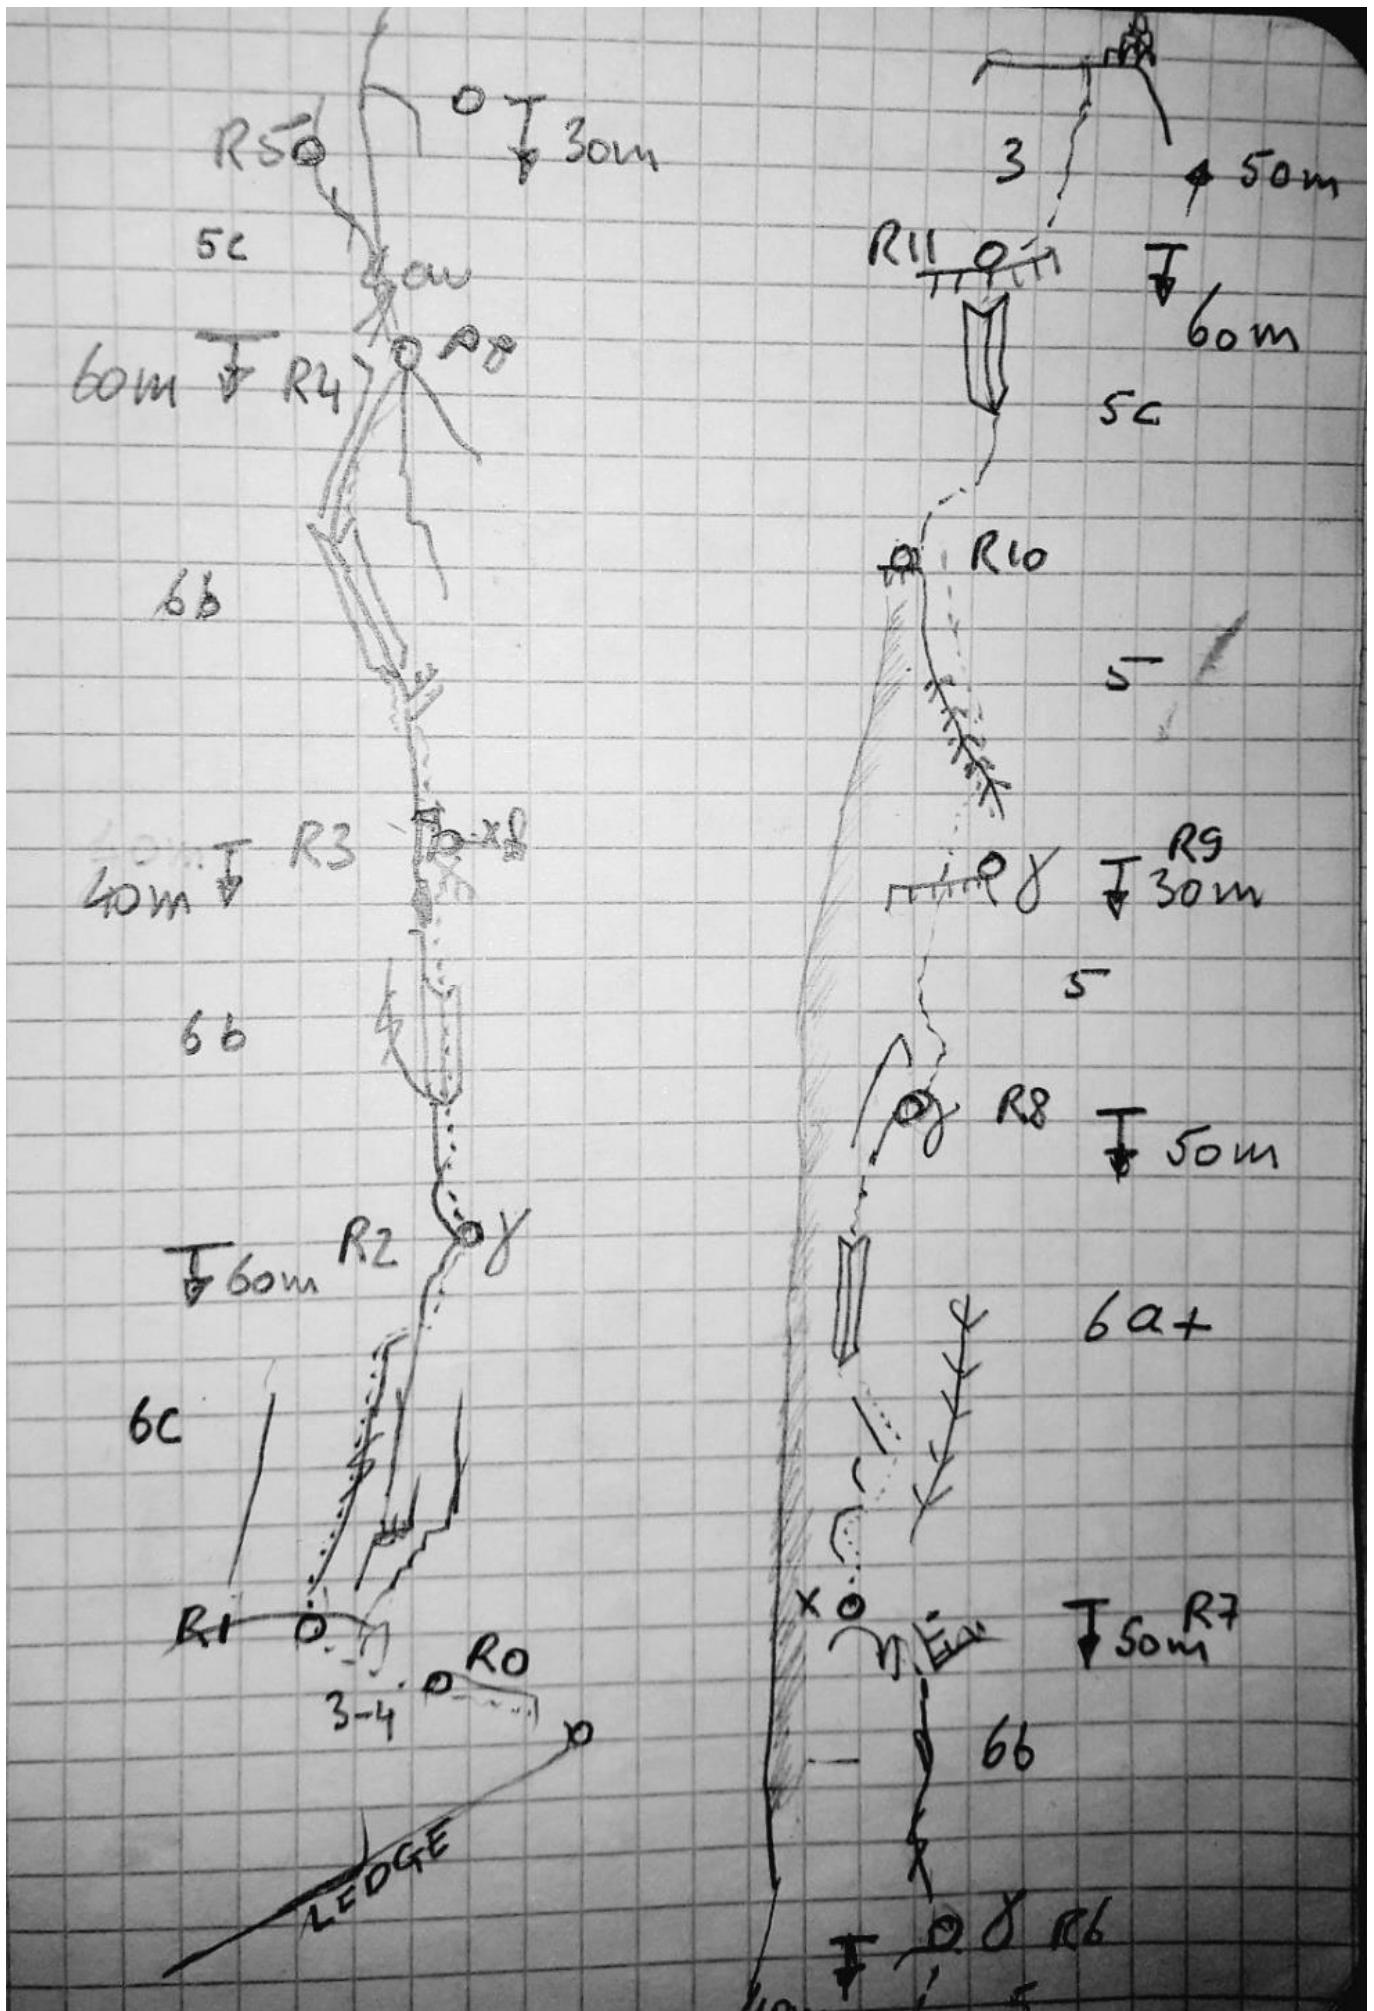 R5 30m
5c
R4
60m
6b
R3
40m
6b
R2
60m
6c
R1
R0
3-4
LEDGE
3
50m
R11
60m
5c
R10
5-
R9
30m
5-
R8
50m
6a+
x
R7
50m
6b
R6
5